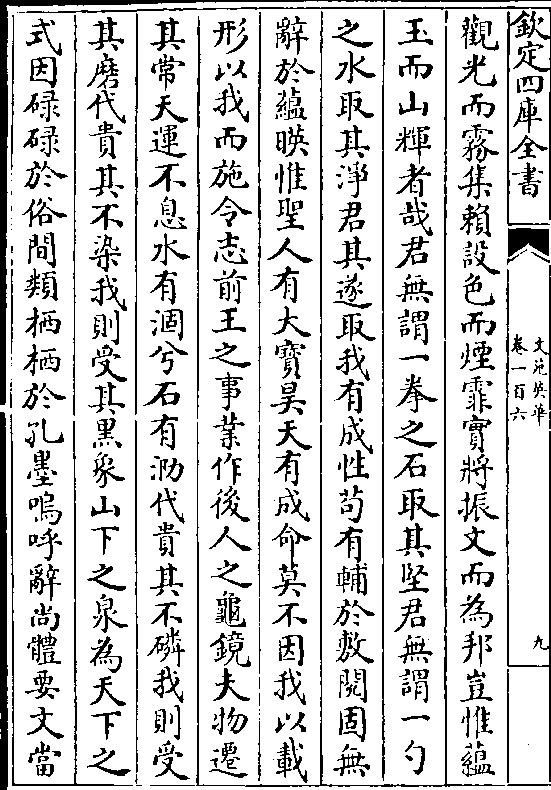 欽定四庫全書
文苑英華
卷一百六
九
觀光而霧集賴設色而煙霏實將振文而為邦豈惟蘊
玉而山輝者哉君無謂一拳之石取其堅君無謂一勺
之水取其淨君其遂取我有成性苟有輔於敷閱固無
辭於蘊暎惟聖人有大寶昊天有成命莫不因我以載
形以我而施令志前王之事業作後人之龜鏡夫物遷
其常天運不息水有涸兮石有泐代貴其不磷我則受
其磨代貴其不染我則受其黑象山下之泉為天下之
式因碌碌於俗間類栖栖於孔墨嗚呼辭尚體要文當